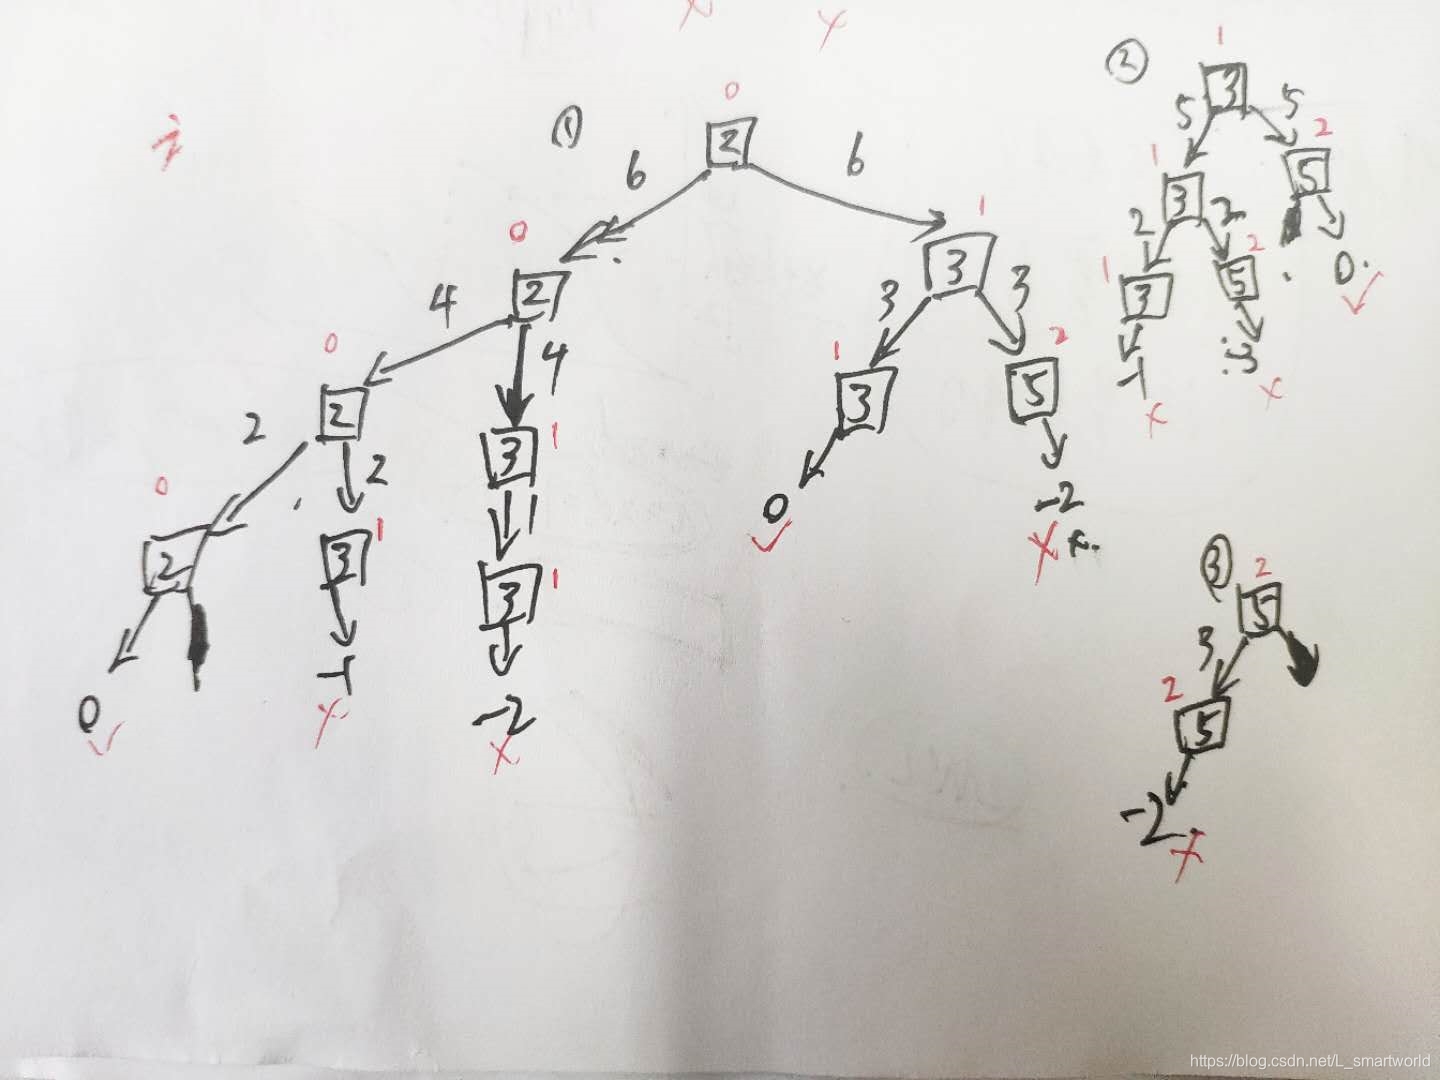 x x
i
① 0
2
6 6
0
2
1
3
4 4
3 3
0
2
1
3
2
5
2 2
1
3
0
2
1
3
1
1
3
0
-2
x x.
0
-1
x
-2
x
② 1
3
5 5
1
3
2
5
2 2
1
3
2
5
0.
-1
x
-3
x
③ 2
5
3
2
5
-2
x
https://blog.csdn.net/L_smartworld